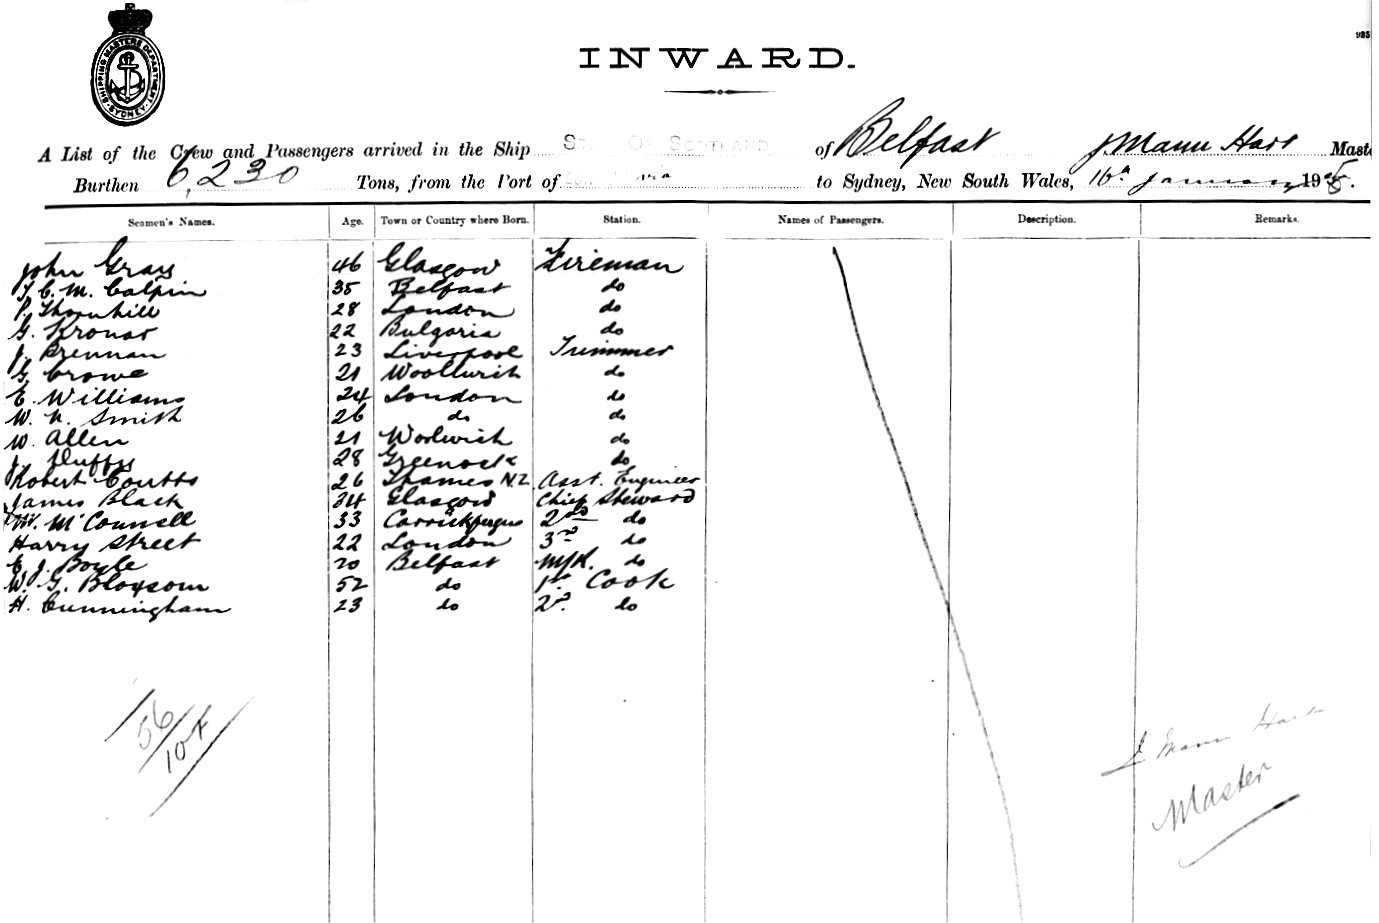 SHIPPING MASTERS DEPARTMENT
SYDNEY
935
INWARD.
A List of the Crew and Passengers arrived in the Ship St. Of Scotland of Belfast J. Mann Hart Maste
Burthen 6,230 Tons, from the Port of to Sydney, New South Wales, 16th January 19
Seamen's Names. Age. Town or Country where Born. Station. Names of Passengers. Description. Remarks.
John Gray 46 Glasgow Fireman
J. C. M. Calpin 35 Belfast do
P. Thornhill 28 London do
G. Kronas 22 Bulgaria do
J. Brennan 23 Liverpool Trimmer
G. Crowe 21 Woollwich do
E. Williams 24 London do
W. N. Smith 26 do do
W. Allen 21 Woolwich do
J. Duffy 28 Greenock do
Robert Coutts 26 Thames N.Z. Asst. Engineer
James Black 34 Glasgow Chief Steward
W. McConnell 33 Carrickfergus 2nd do
Harry Street 22 London 3rd do
E. J. Boyle 20 Belfast do
W. G. Bloxsom 52 do 1st Cook
H. Cunningham 23 do 2nd do
56
107
J. Mann Hart
Master